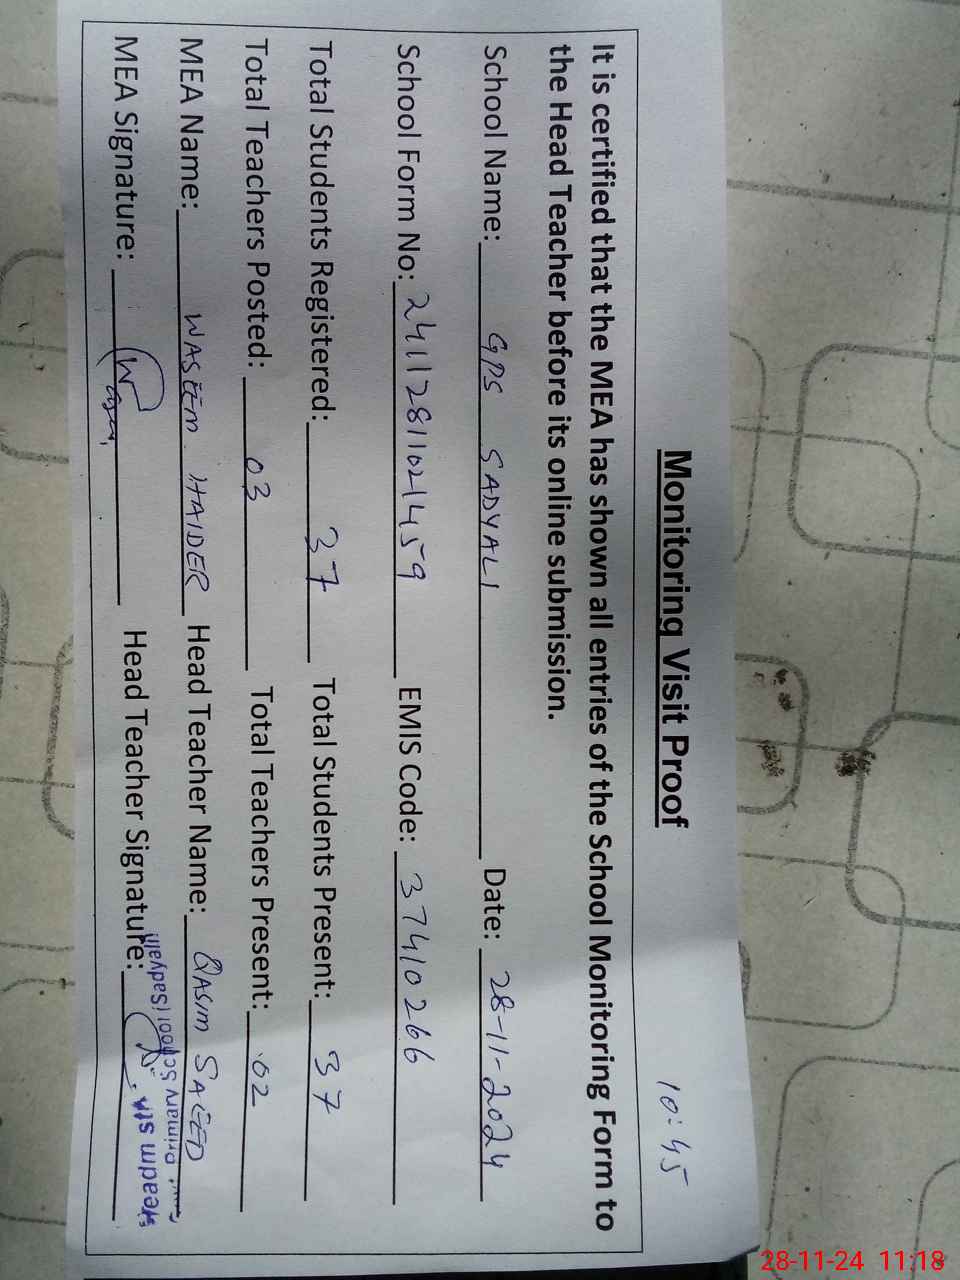 10:45
Monitoring Visit Proof
It is certified that the MEA has shown all entries of the School Monitoring Form to
the Head Teacher before its online submission.
School Name: GPS SADYALI Date: 28-11-2024
School Form No: 241128110211459 EMIS Code: 37410266
Total Students Registered: 37 Total Students Present: 37
Total Teachers Posted: 03 Total Teachers Present: 02
MEA Name: WASEEM HAIDER Head Teacher Name: QASIM SAEED
MEA Signature: Head Teacher Signature:
Primary School (Sadyali)
28-11-24 11:18